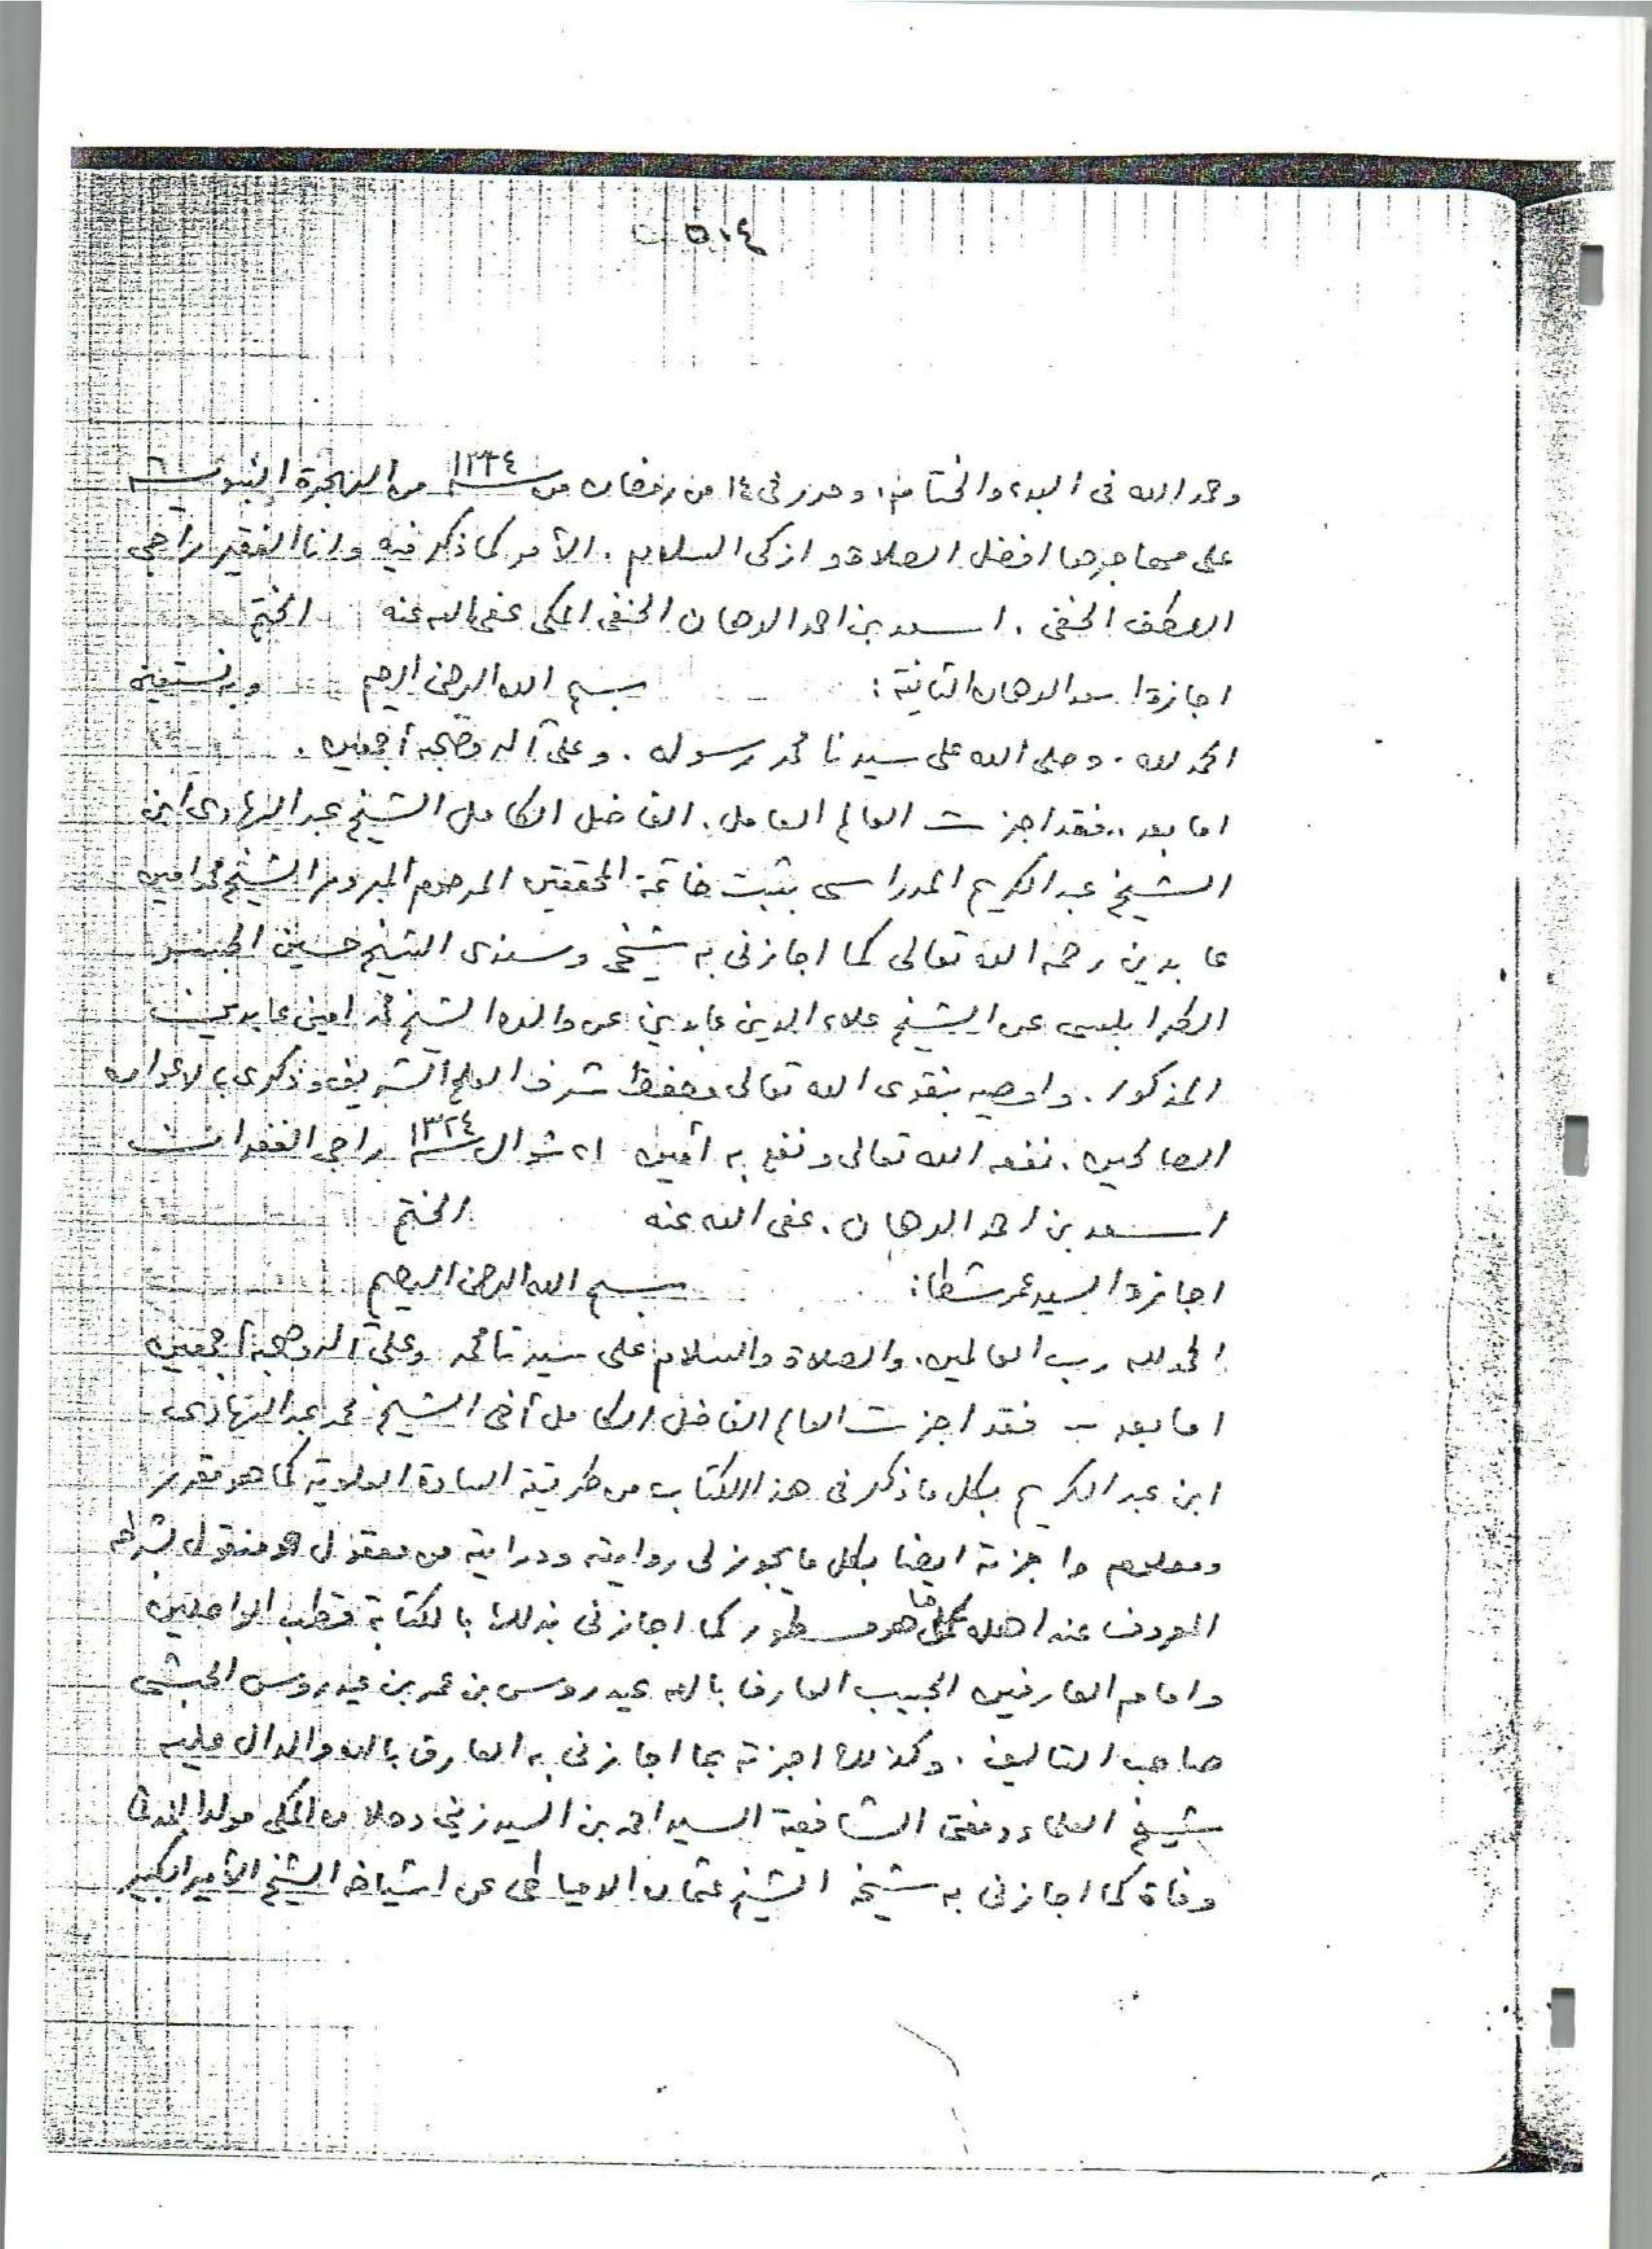 ٥٠٤
وحمد الله فى البدء والختام، وحرر فى ١٤ من رمضان من سنة ١٣٢٤ من الهجرة النبوية
على مهاجرها افضل الصلاة وازكى السلام . الأمر كما ذكر فيه وانا الفقير راجى
اللطف الخفى . اسعد بن احمد الدهان الحنفى المكى عفى الله عنه الختم
اجازة اسعد الدهان الثانية : بسم الله الرحمن الرحيم وبه نستعين
الحمد لله . وصلى الله على سيدنا محمد رسوله . وعلى آله وصحبه أجمعين .
اما بعد .. فقد اجزت العالم العامل . الفاضل الكامل الشيخ عبد الهادى ابن
الشيخ عبد الكريم المدراسى بثبت خاتمة المحققين المرحوم المبرور الشيخ محمد امين
عابدين رحمه الله تعالى كما اجازنى به شيخى وسندى الشيخ حسين الجسر
الطرابلسى عن الشيخ علاء الدين عابدين عن والده الشيخ محمد امين عابدين
المذكور . واوصيه بتقوى الله تعالى وحفظ شرف العلم الشريف وذكرى بالدعوات
الصالحين . نفعه الله تعالى ونفع به آمين ٢١ شوال سنة ١٣٢٤ راجى الغفران
اسعد بن احمد الدهان . عفى الله عنه الختم
اجازة السيد عمر شطا : بسم الله الرحمن الرحيم
الحمد لله رب العالمين . والصلاة والسلام على سيدنا محمد وعلى آله وصحبه أجمعين
اما بعد - فقد اجزت العالم الفاضل الكامل أخى الشيخ محمد عبد الهادى
ابن عبد الكريم بكل ما ذكر فى هذا الكتاب من طريقة السادة العلوية كما هو مقرر
ومعلوم واجزته ايضا بكل ما يجوز لى روايته ودرايته من معقول ومنقول بشرطه
المعروف عند اهله كما هو مسطور كما اجازنى بذلك بالكتابة قطب الواصلين
وامام العارفين الحبيب العارف بالله عيدروس بن عمر بن عيدروس الحبشى
صاحب التاليف . وكذلك اجزته بما اجازنى به العارف بالله والدال عليه
شيخ العلماء ومفتى الشافعية السيد احمد بن السيد زيني دحلان المكى مولدا المدنى
وفاة كما اجازنى به شيخه الشيخ عثمان الدمياطى عن اشياخه الشيخ الأمير الكبير